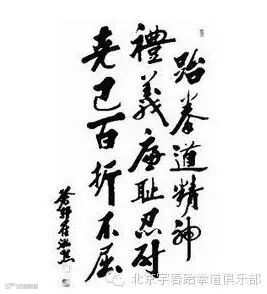 跆拳道精神
禮義廉耻忍耐
克己百折不屈
蒼軒崔泓熙
北京宇春跆拳道俱乐部